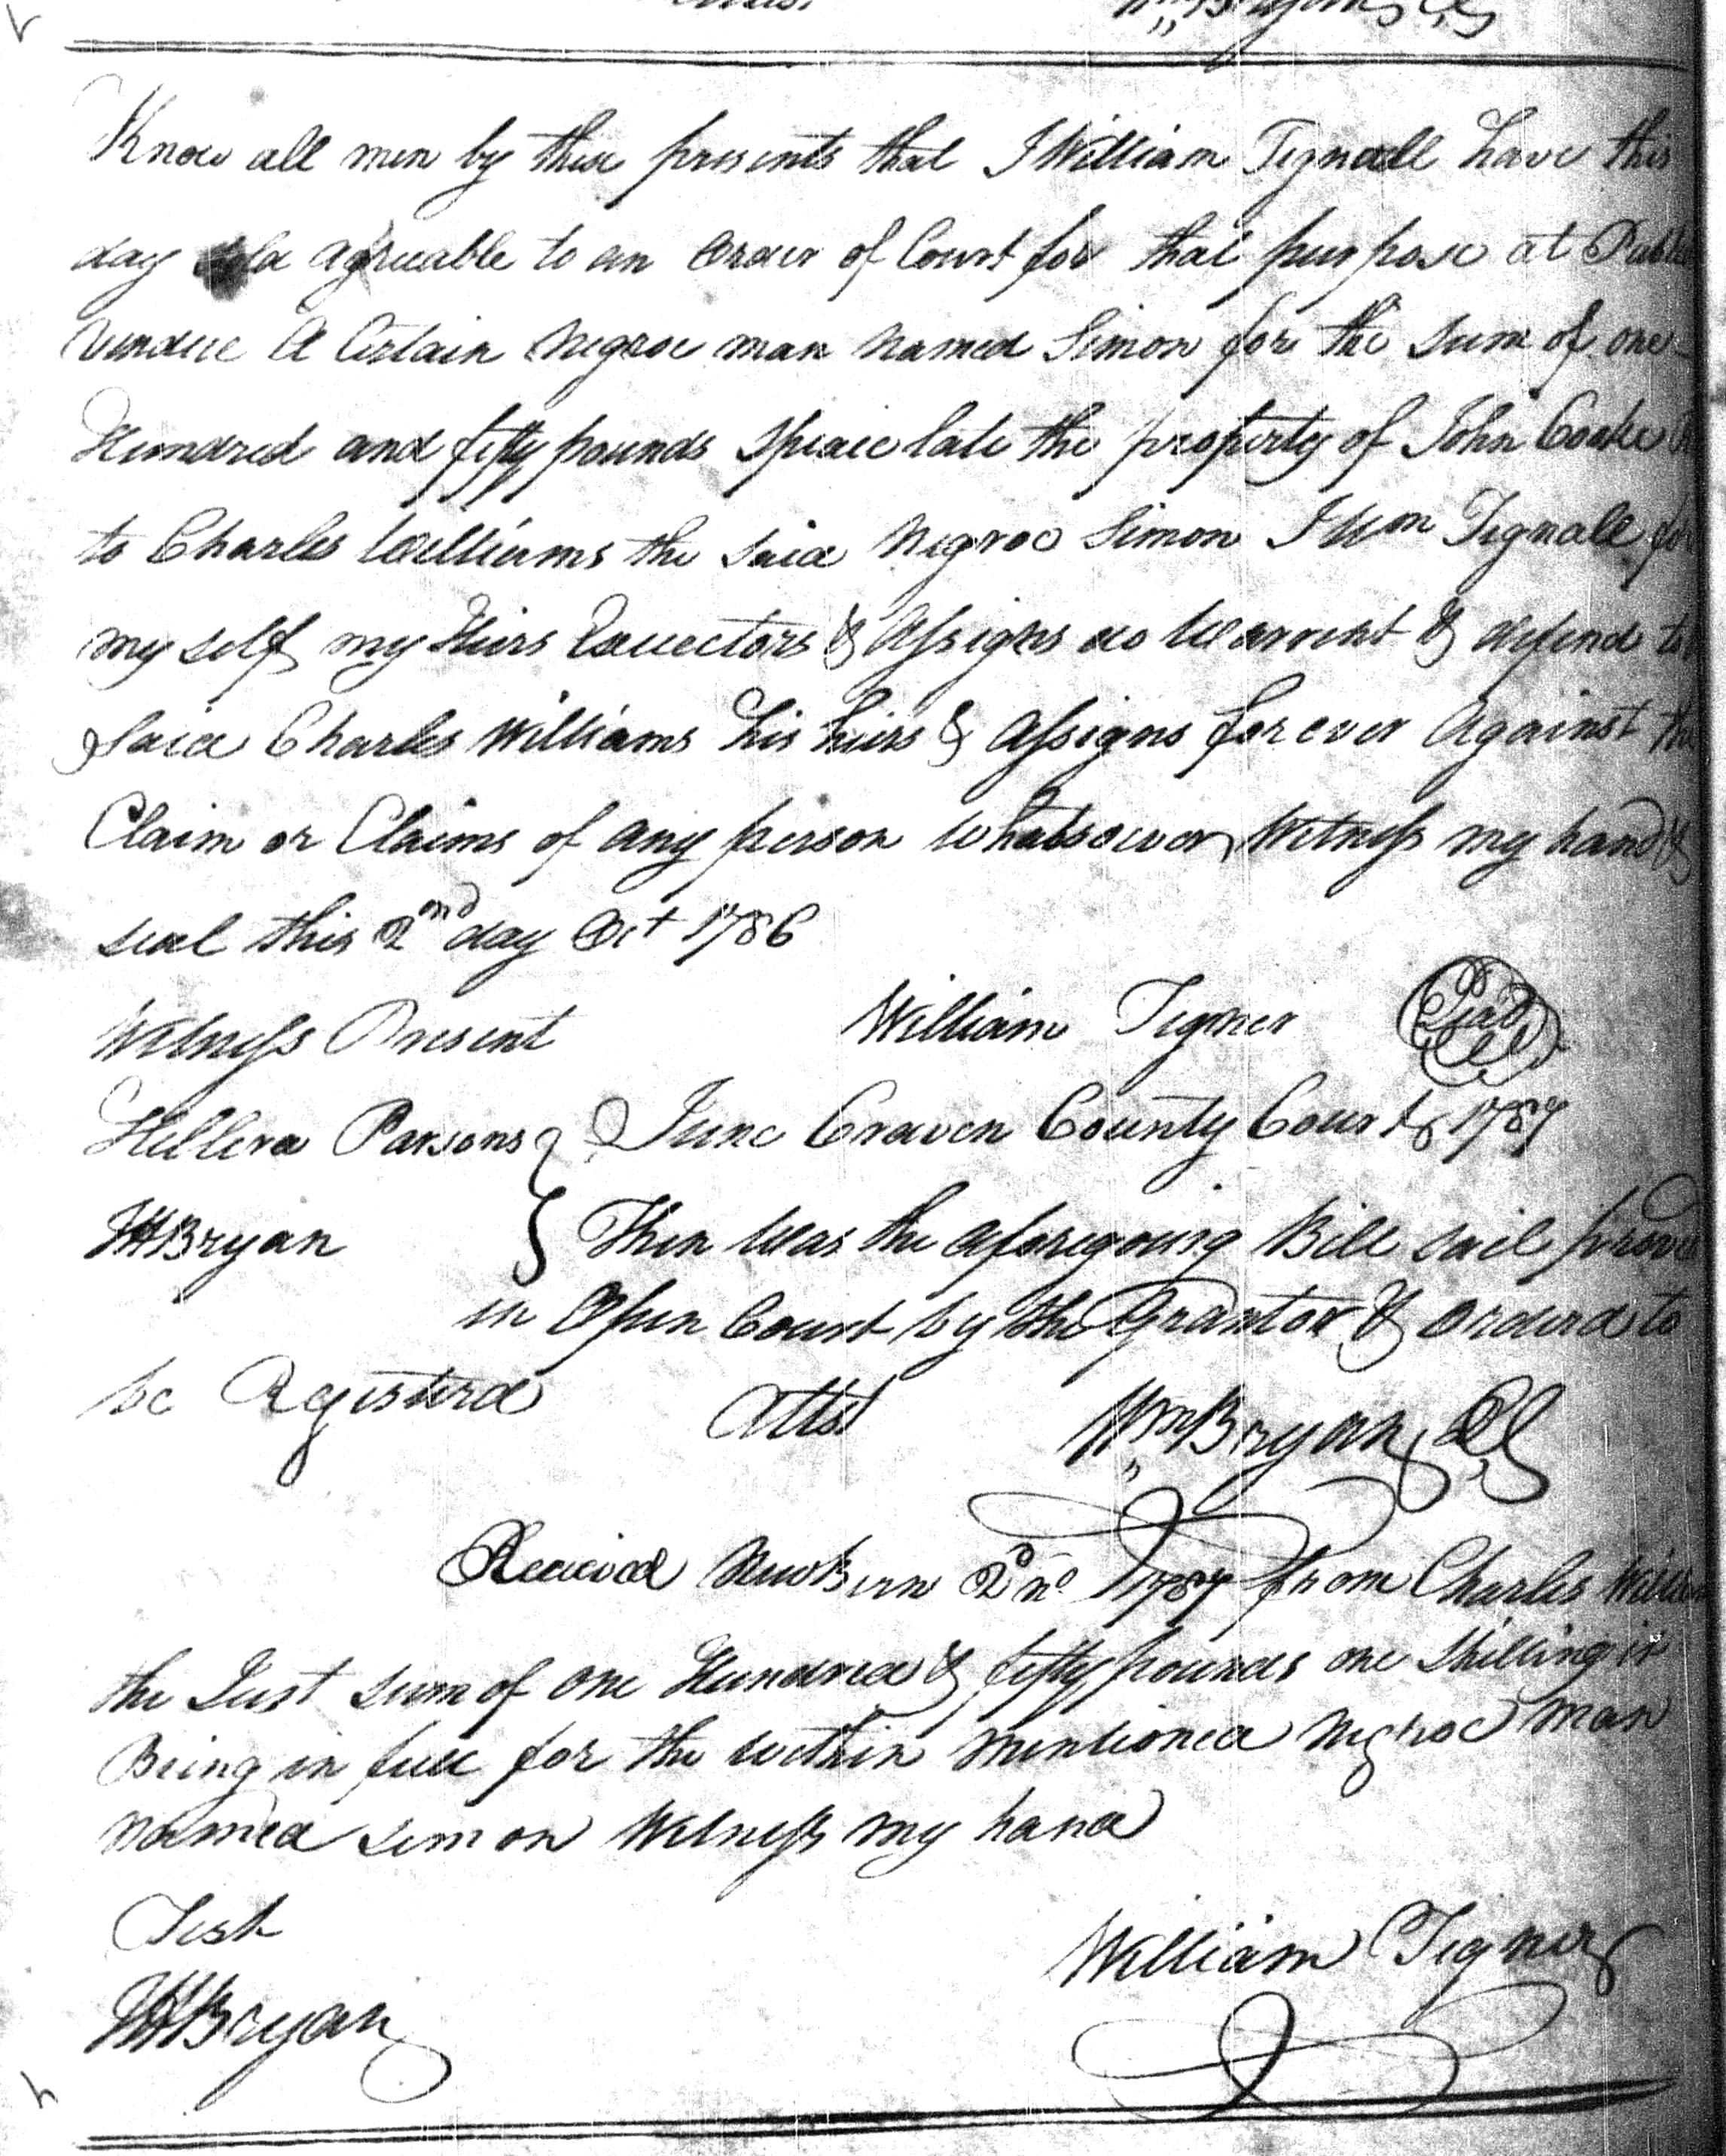 Know all men by these presents that I William Tignall have this
day sold agreeable to an Order of Court for that purpose at Public
Vendue A Certain Negroe man Named Simon for the Sum of one
Hundred and fifty pounds Specie late the property of John Cooke
to Charles Williams the said Negroe Simon I Wm Tignall for
my self my Heirs Executors & Assigns do Warrent & defend to
Said Charles Williams his heirs & Assigns for ever Against the
Claim or Claims of any person Whatsoever Witness my hand &
seal this 2nd day Oct 1786
Witness Present William Tigner Seal
Parsons } June Craven County Court 1787
Bryan } Then Was the aforegoing Bill sail proved
in Open Court by the Grantor & Ordered to
be Registerd Attst Wm Bryan CC
Received NewBern 1787 from Charles Williams
the Just Sum of one Hundred & fifty pounds one Shilling it
Being in full for the within Mentioned Negroe Man
Named Simon Witness my hand
Test William Tigner
Bryan